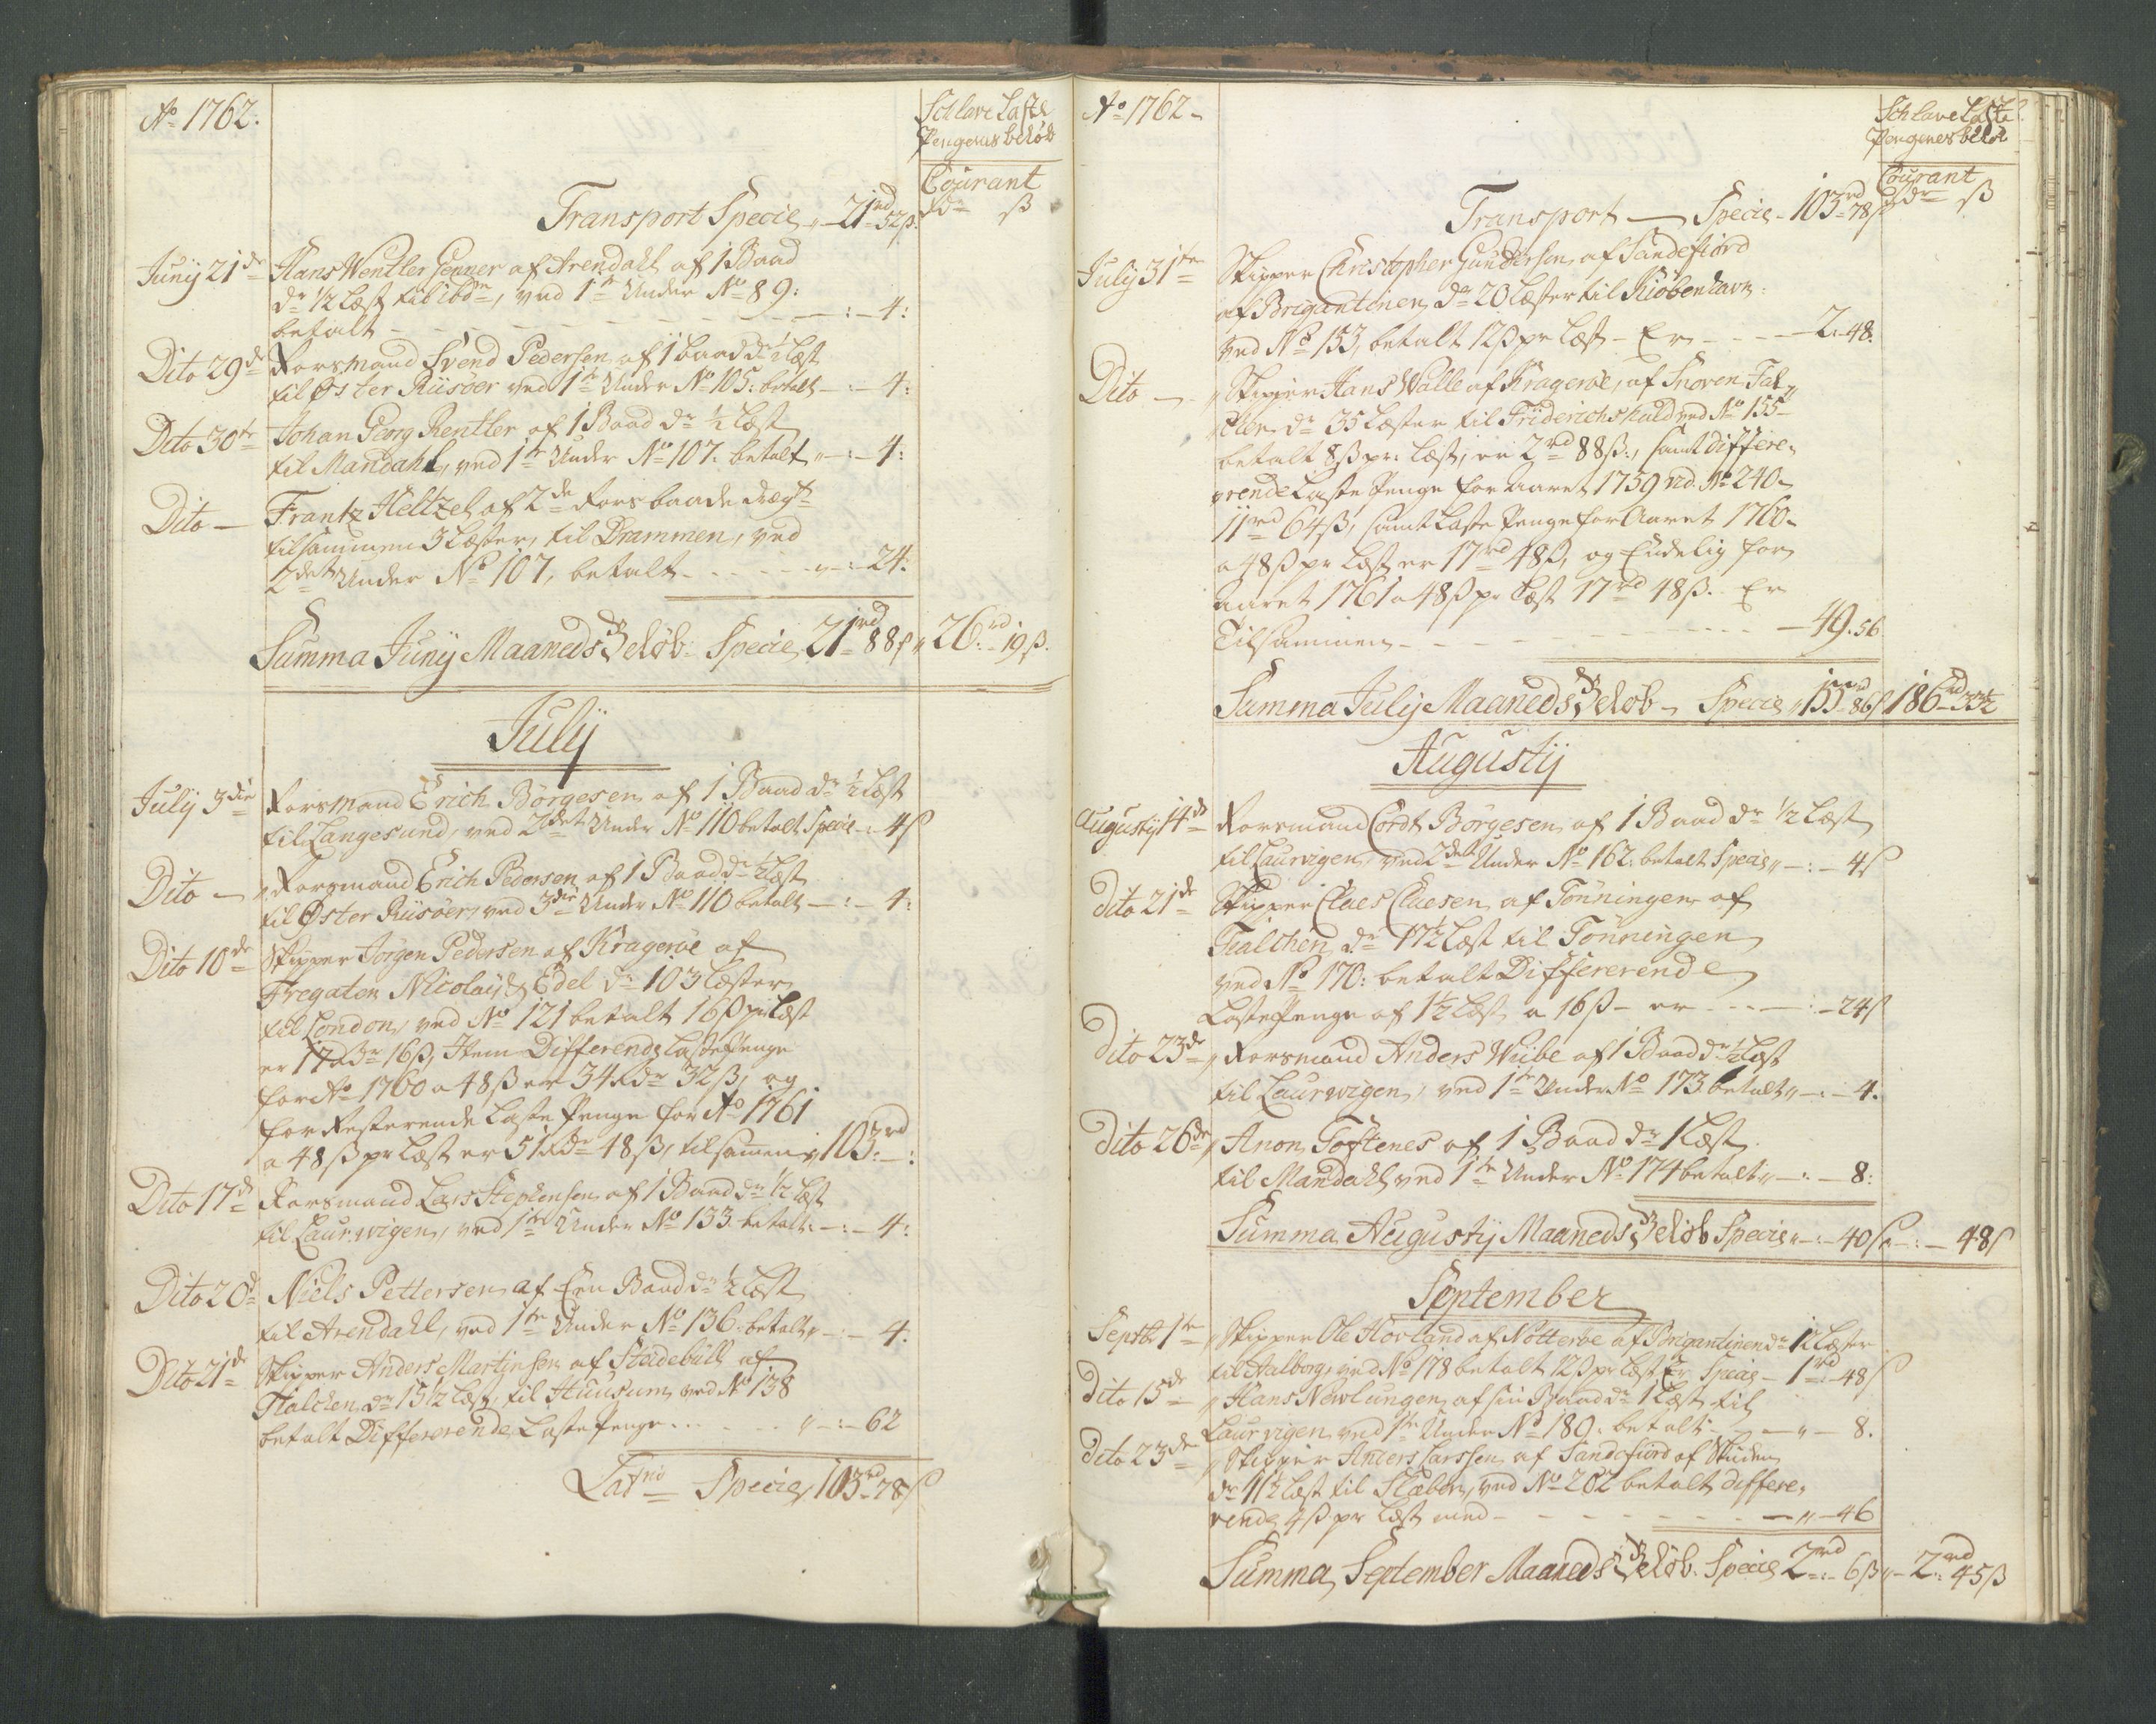 Ao 1762.
Schlave Laste
Pengenes beløb
Courant
Rdr ß
Transport Specie „ 21rd 52ß.
Junij 21de Hans Wentler Genner af Arendahl af 1 Baad
dr ½ Læst til ibdm, ved 1te Under No 89:
betalt - - - - - - - : - 4:
Dito 29de Forsmand Svend Pedersen af 1 baad dr ½ Læst
til Øster Riisöer ved 1te Under No 105: betalt - : - 4:
Dito 30te Johan Georg Rentler af 1 Baad dr ½ Læst
til Mandahl, ved 1te Under No 107: betalt „ - : - 4:
Dito — Frantz Heltzel af 2de Forsbaade drægt
tilsammen 3 Læster, til Drammen, ved
2det Under No 107, betalt - - - - „ - : - 24:
Summa Junij Maaneds Beløb. Specie 21rd 88ß „ 26rd 19ß.
Julij
Julij 3die Forsmand Erich Börgesen af 1 Baad dr ½ Læst
til Langesund, ved 2det Under No 110 betalt Specie - : 4ß
Dito — „ Forsmand Erich Pedersen af 1 Baad dr ½ Læst
til Øster Riisöer, ved 3die Under No 110 betalt - : - 4:
Dito 10de Skipper Jörgen Pedersen af Krageröe af
Fregaten Nicolai & Edel dr 103 Læster
til London, ved No 121 betalt 16ß pr Læst
er 17 Rdr 16ß, Item Differende Laste Penge
for Ao 1760 a 48ß er 34 Rdr 32ß, og
for Resterende Laste Penge for Ao 1761
a 48ß pr Læst er 51 Rdr 48ß, tilsamen „ 103rd - :
Dito 17de Forsmand Lars Stephensen af 1 Baad dr ½ Læst
til Laurvigen, ved 1te Under No 133 betalt: - : - 4:
Dito 20de Niels Pettersen af Een Baad dr ½ Læst
til Arendahl, ved 1te Under No 136. betalt „ - : - 4.
Dito 21de Skipper Anders Martinsen af Studebüll af
Tialchen dr 15½ Læst, til Huusum, ved No 138
betalt Differerende Laste Penge - - - - „ - : - 62
Latus Specie, 103rd 78ß
Ao 1762
Schlave Laste
Pengenes beløb
Courant
Rdr ß
Transport — Specie - 103rd 78ß
Julij 31te Skipper Christopher Gundersen af Sandefiord
af Brigantinen dr 20 Læster til Kiöbenhavn
ved No 153, betalt 12ß pr Læst - Er - - - - 2.. 48.
Dito — „ Skipper Hans Walle af Krageröe, af Snoven Fal„
„ dr 35 Læster til Friderichshald ved No 155
betalt 8ß pr: Læst, er 2rd 88ß, samt differe„
rende Laste Penge for Aaret 1759 ved No 240
11rd 64ß, samt Laste Penge for Aaret 1760
a 48ß pr Læst er 17rd 48ß, og Endelig for
Aaret 1761 a 48ß pr Læst 17rd 48ß. Er
Tilsammen - - - - - - - - 49. 56
Summa Julij Maaneds Beløb - Specie „ 155rd 86ß 186rd 33½
Augustij
Augustij 14de Forsmand Cordt Börgesen af 1 Baad dr ½ Læst
til Laurvigen, ved 2det Under No 162: betalt Specie „ - : - 4ß
Dito 21de Skipper Claes Claesen af Tönningen af
Tialchen dr 17½ Læst til Tönningen
ved No 170: betalt Differerende
Laste Penge af 1½ Læst a 16ß - er - - - : - 24ß
Dito 23de „ Forsmand Anders Wiibe af 1 Baad dr ½ Læst
til Laurwigen, ved 1te Under No 173. betalt „ - : - 4.
Dito 26de „ Anon Toftenes af 1 Baad dr 1 Læst
til Mandahl ved 1te Under No 174 betalt „ - : - 8:
Summa Augustij Maaneds Beløb Specie „ - : - 40ß „ - : - 48ß
September
Septbr 1te „ Skipper Ole Hovland af Nötteröe af Brigantinen dr 12 Læster
til Aalborg, ved No 178 betalt 12ß pr Læst Er Specie - 1rd - 48ß
Dito 15de „ Hans Newlungen af sin Baad dr 1 Læst til
Laurvigen ved 1te Under No 189: betalt - - „ - 8.
Dito 23de „ Skipper Anders Larssen af Sandefiord af Skuden
dr 11½ Læst til Flæben, ved No 202 betalt differe„
rende 4ß pr Læst med - - - - - - „ - 46
Summa September Maaneds Beløb. Specie 2rd - 6ß „ - 2rd 45ß